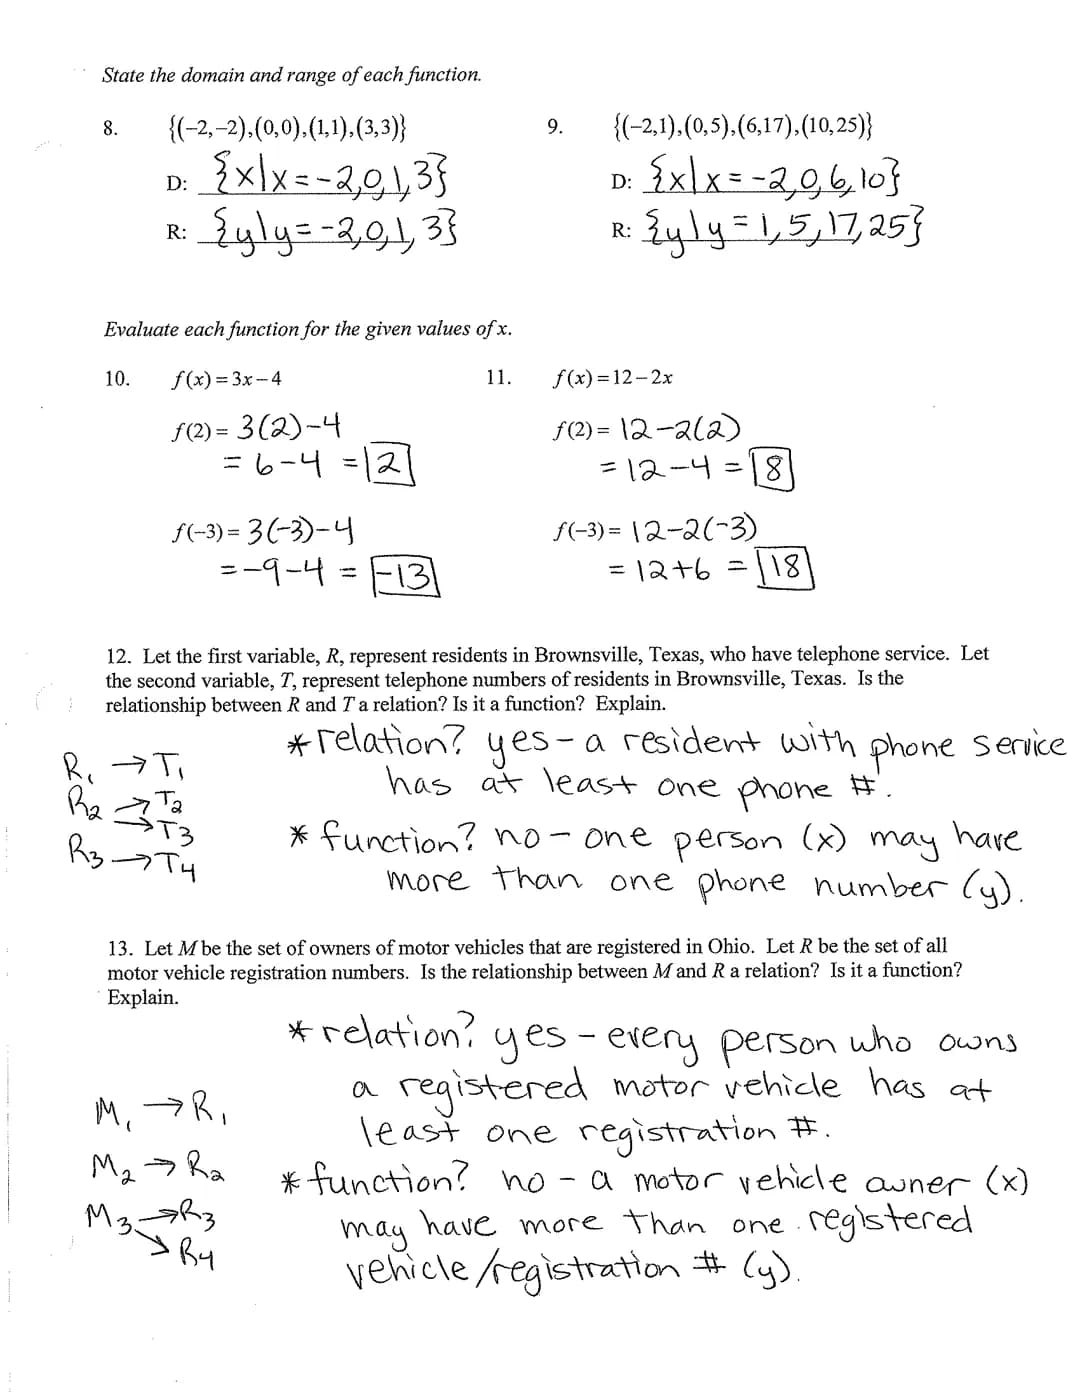 State the domain and range of each function.
8. {(−2,−2),(0,0),(1,1),(3,3)}
D: {x|x=-2,0,1,3}
R: {y|y=-2,0,1,3}
9. {(−2,1),(0,5),(6,17),(10,25)}
D: {x|x=-2,0,6,10}
R: {y|y=1,5,17,25}
Evaluate each function for the given values of x.
10. f(x)=3x−4
f(2)= 3(2)-4
=6-4 =2
f(−3)= 3(-3)-4
=-9-4 =-13
11. f(x)=12−2x
f(2)= 12-2(2)
=12-4 =8
f(−3)= 12-2(-3)
=12+6 =18
12. Let the first variable, R, represent residents in Brownsville, Texas, who have telephone service. Let
the second variable, T, represent telephone numbers of residents in Brownsville, Texas. Is the
relationship between R and T a relation? Is it a function? Explain.
R1 → T1
R2 → T2
→ T3
R3 → T4
* relation? yes - a resident with phone service
has at least one phone #.
* function? no - one person (x) may have
more than one phone number (y).
13. Let M be the set of owners of motor vehicles that are registered in Ohio. Let R be the set of all
motor vehicle registration numbers. Is the relationship between M and R a relation? Is it a function?
Explain.
M1 → R1
M2 → R2
M3 → R3
→ R4
* relation? yes - every person who owns
a registered motor vehicle has at
least one registration #.
* function? no - a motor vehicle owner (x)
may have more than one registered
vehicle/registration # (y).